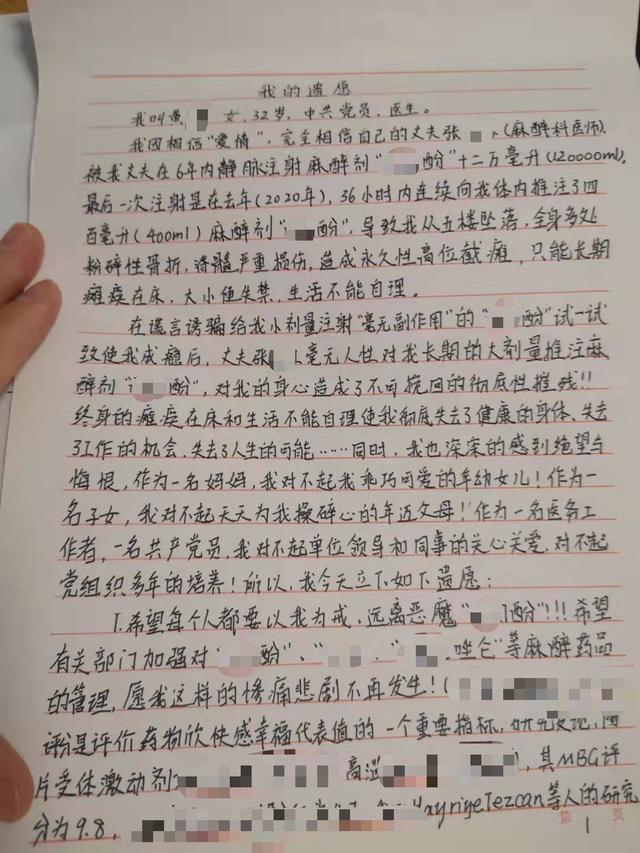 我的遗愿
我叫黄 女，32岁，中共党员，医生。
我因相信“爱情”，完全相信自己的丈夫张 （麻醉科医师），
被我丈夫在6年内静脉注射麻醉剂“ 酚”十二万毫升(120000ml)，
最后一次注射是在去年（2020年），36小时内连续向我体内推注了四
百毫升（400ml）麻醉剂“ 酚”，导致我从五楼坠落，全身多处
粉碎性骨折，脊髓严重损伤，造成永久性高位截瘫，只能长期
瘫痪在床，大小便失禁，生活不能自理。
在谎言诱骗给我小剂量注射“毫无副作用”的“ 酚”试一试
致使我成瘾后，丈夫张 毫无人性对我长期的大剂量推注麻
醉剂“ 酚”，对我的身心造成了不可挽回的彻底性摧残!!
终身的瘫痪在床和生活不能自理使我彻底失去了健康的身体、失去
了工作的机会、失去了人生的可能……同时，我也深深的感到绝望与
悔恨，作为一名妈妈，我对不起我乖巧可爱的年幼女儿！作为一
名子女，我对不起天天为我操碎心的年迈父母！作为一名医务工
作者，一名共产党员，我对不起单位领导和同事的关心关爱，对不起
党组织多年的培养！所以，我今天立下如下遗愿：
1.希望每个人都要以我为戒，远离恶魔“ 酚”!!!希望
有关部门加强对“ 酚”、“ 、 唑仑”等麻醉药品
的管理，愿我这样的惨痛悲剧不再发生！（
评分是评价药物欣快感幸福代表值的一个重要指标，研究发现，阿
片受体激动剂 高 ，其MBG评
分为9.8， 等人的研究
1 页